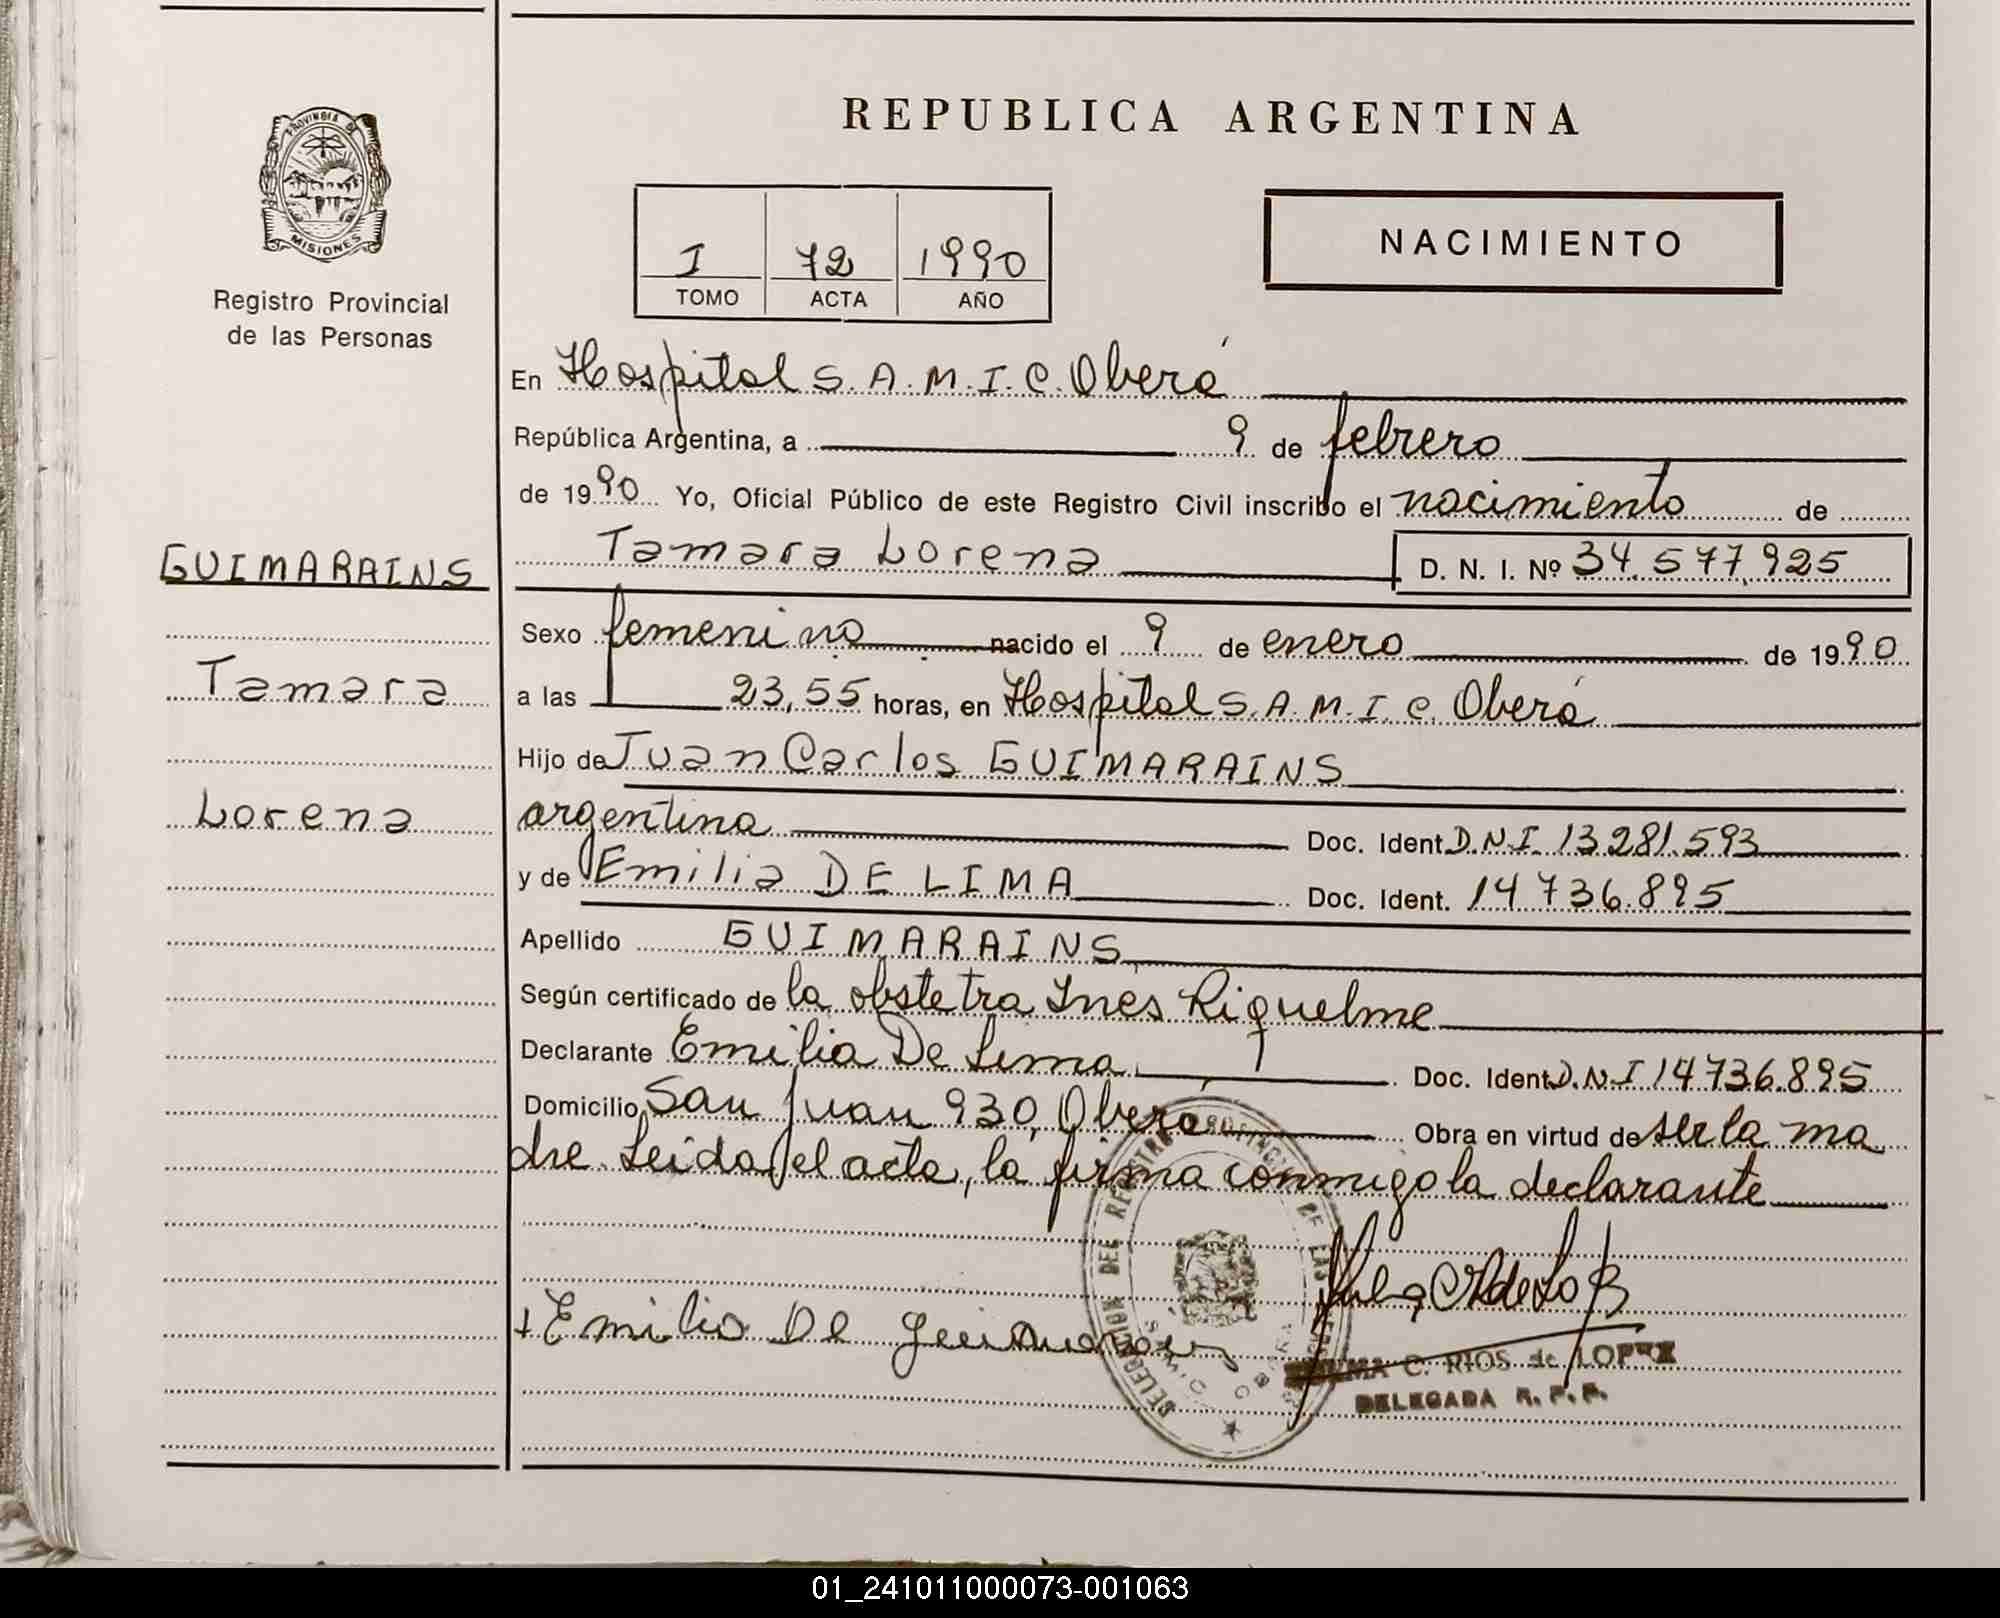 PROVINCIA DE
MISIONES
Registro Provincial
de las Personas
GUIMARAINS
Tamara
Lorena
REPUBLICA ARGENTINA
I 72 1990
TOMO ACTA AÑO
NACIMIENTO
En Hospital S.A.M.I.C. Oberá
República Argentina, a 9 de febrero
de 1990 Yo, Oficial Público de este Registro Civil inscribo el nacimiento de
Tamara Lorena D. N. I. Nº 34.577.925
Sexo femenino nacido el 9 de enero de 1990
a las 23,55 horas, en Hospital S.A.M.I.C. Oberá
Hijo de Juan Carlos GUIMARAINS
argentina Doc. Ident. D.N.I. 13.281.593
y de Emilia DE LIMA Doc. Ident. 14.736.895
Apellido GUIMARAINS
Según certificado de la obstetra Ines Riquelme
Declarante Emilia De Lima Doc. Ident. D.N.I 14.736.895
Domicilio San Juan 930, Oberá Obra en virtud de ser la ma
dre. Leida el acta, la firma conmigo la declarante
DELEGACION DEL REGISTRO PROVINCIAL DE LAS
Emilia De
C. RIOS de LOPEZ
DELEGADA R. P. P.
01_241011000073-001063